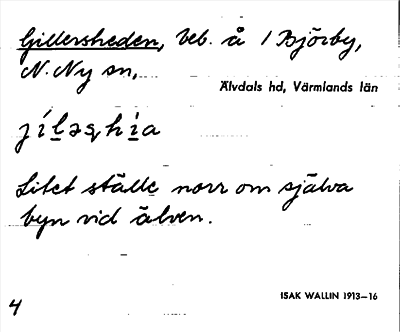 Gillersheden, beb. å / Björby,
N. Ny sn,
Älvdals hd, Värmlands län
Litet ställe norr om själva
byn vid älven.
ISAK WALLIN 1913–16
4